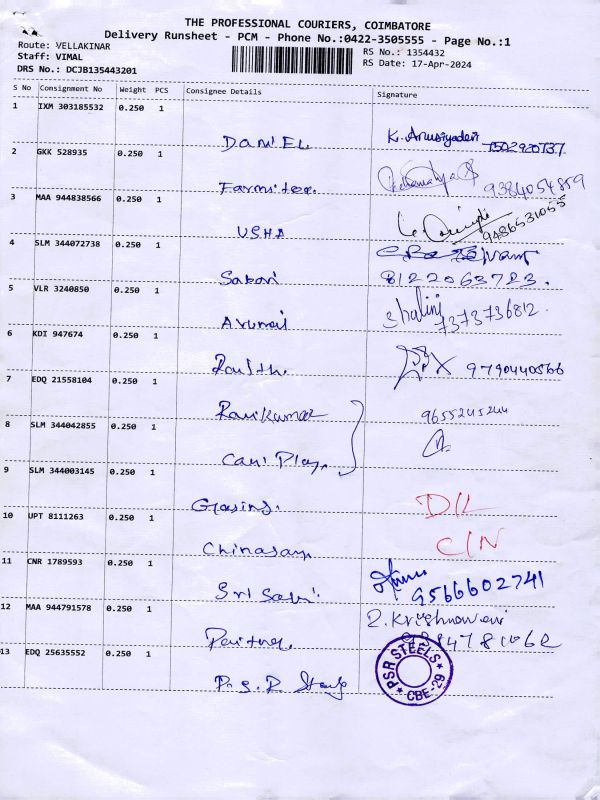 THE PROFESSIONAL COURIERS, COIMBATORE
Delivery Runsheet - PCM - Phone No.:0422-3505555 - Page No.:1
Route: VELLAKINAR
RS No.: 1354432
Staff: VIMAL
RS Date: 17-Apr-2024
DRS No.: DCJB135443201
S No Consignment No Weight PCS Consignee Details Signature
1 IXM 303185532 0.250 1
DaniEL K. Anusiyadevi
2 GKK 528935 0.250 1
Farmitee. 9384054859
3 MAA 944838566 0.250 1
USHA 9486531055
4 SLM 344072738 0.250 1
Sabari 8122063723.
5 VLR 3240850 0.250 1
Shalini
7373736812.
6 KDI 947674 0.250 1
9790440566
7 EDQ 21558104 0.250 1
Ravikumar
8 SLM 344042855 0.250 1
9 SLM 344003145 0.250 1
D/L
10 UPT 8111263 0.250 1
C/N
11 CNR 1789593 0.250 1
Sri Sabri 9566602741
12 MAA 944791578 0.250 1
R. Krishnaveni
13 EDQ 25635552 0.250 1
PSR STEELS
CBE-29